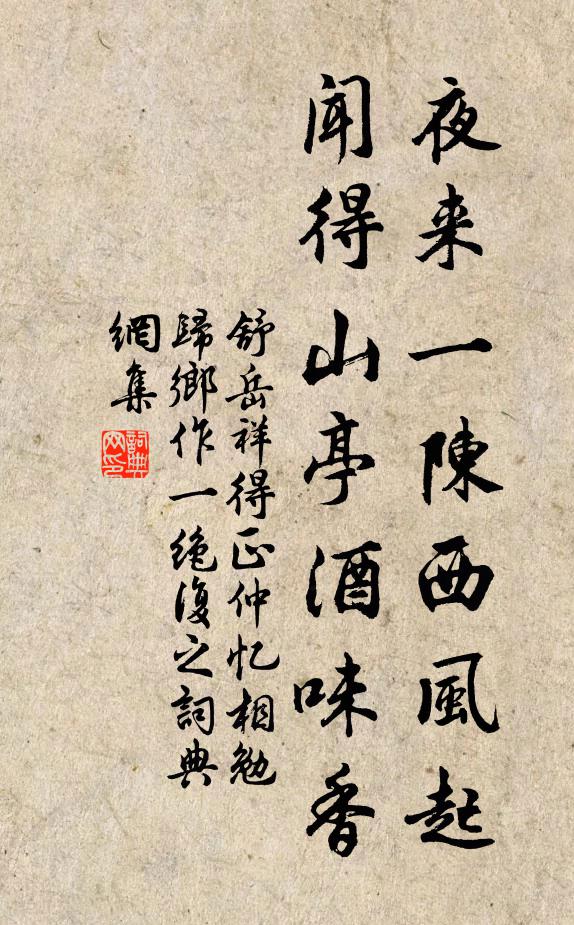 夜来一陳西風起
聞得山亭酒味香
舒岳祥得正仲忆相勉
歸鄉作一绝復之詞典
網集
詞典网印